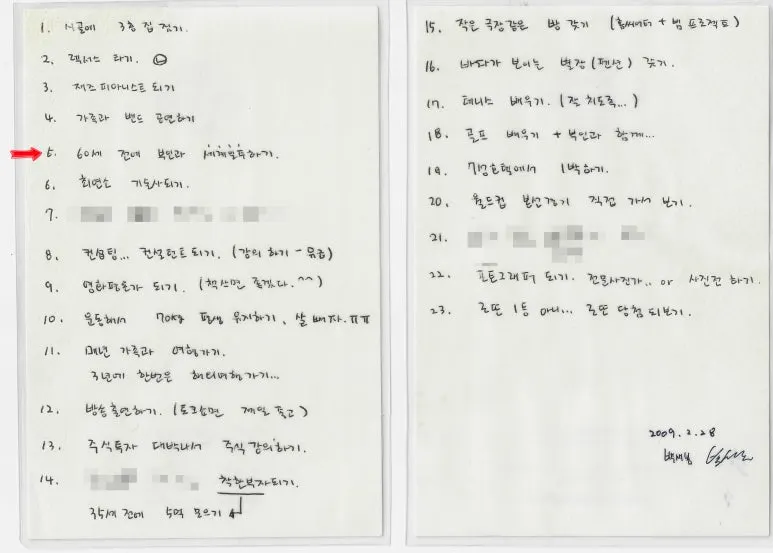 1. 시골에 3층 집 짓기.
2. 렉서스 타기.
3. 재즈 피아니스트 되기
4. 가족과 밴드 공연하기
5. 60세 전에 부인과 세계일주하기.
6. 최연소 기도사되기.
7.
8. 컨설팅... 컨설턴트되기. (강의 하기 - 뮤음)
9. 영화평론가 되기. (책쓰면 좋겠다.^^)
10. 운동해서 70kg 평생 유지하기, 살 빼자.ㅠㅠ
11. 매년 가족과 여행가기.
3년에 한번은 해외여행가기...
12. 방송출연하기. (토크쇼면 제일 좋고)
13. 주식투자 대박나서 주식강의하기.
14. 착한부자되기.
35세 전에 5억 모으기
15. 작은 극장같은 방 갖기 (홈씨어터 + 빔 프로젝트)
16. 바다가 보이는 별장(펜션) 갖기.
17. 테니스 배우기. (잘 치도록...)
18. 골프 배우기 + 부인과 함께...
19. 7성호텔에서 1박하기.
20. 월드컵 본선경기 직접 가서 보기.
21.
22. 포토그래퍼 되기. 전문사진가.. or 사진전 하기.
23. 로또 1등 아니... 로또 당첨 되보기.
2009. 2. 28